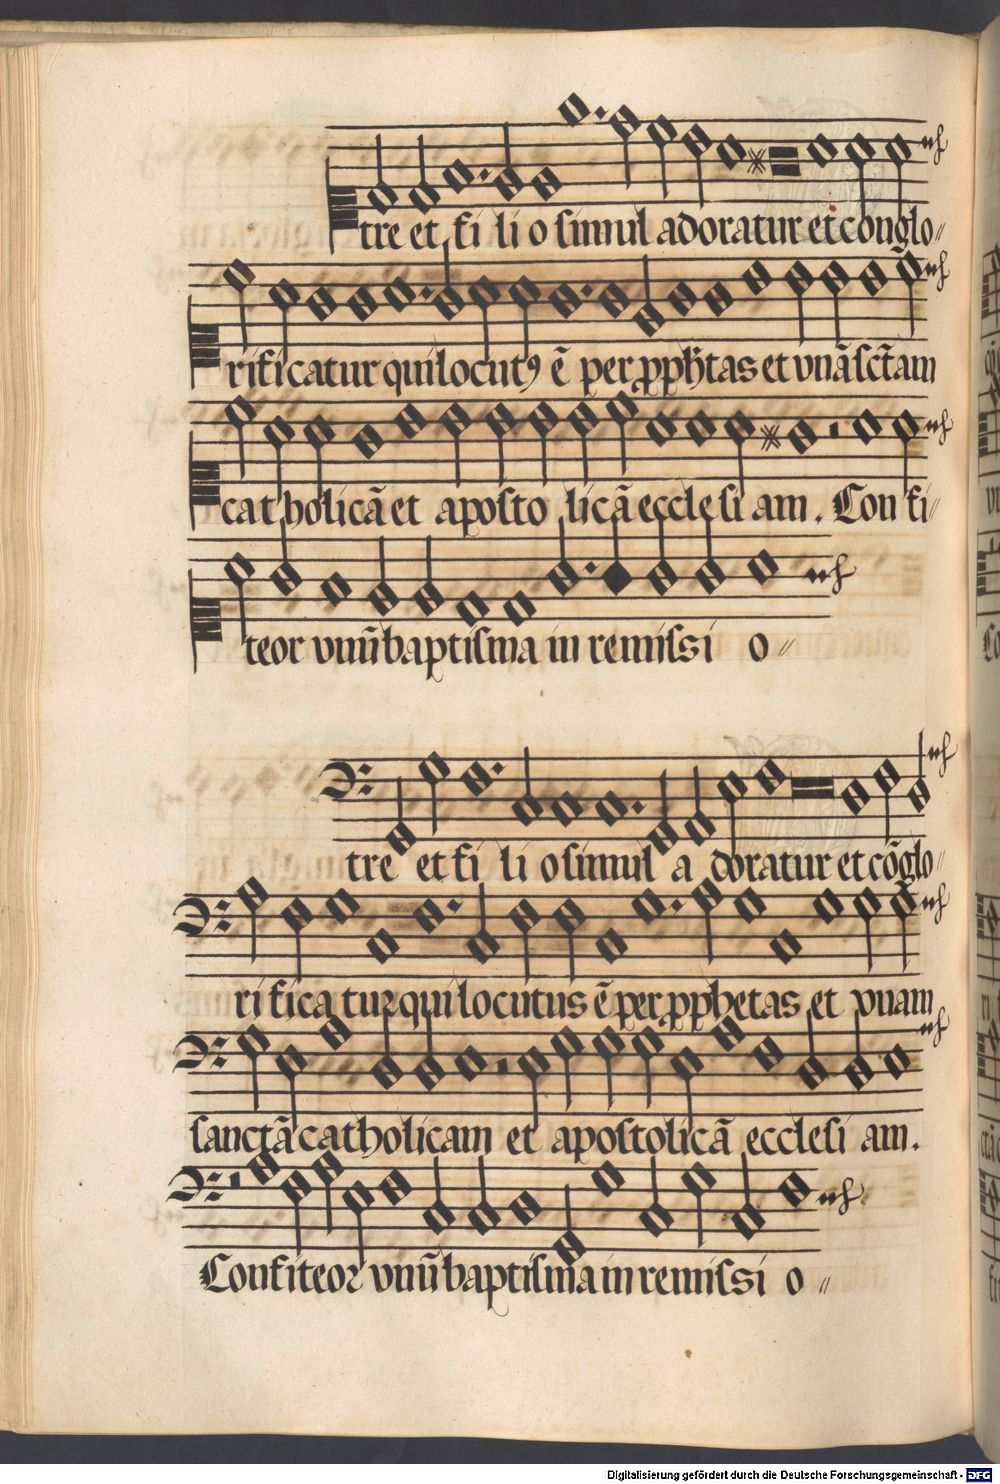 tre et fi li o simul adoratur et conglo〃
rificatur qui locutꝰ ē per ꝓph̄tas et vnā sc̄tam
catholicā et aposto licā ecclesi am. Con fi〃
teor vnuū baptisma in remissi o〃
tre et fi li o simul a doratur et cōglo〃
rifica tur qui locutus ē per ꝓphetas et vnam
sanctā catholicam et apostolicā ecclesi am.
Confiteor vnuū baptisma in remissi o〃
Digitalisierung gefördert durch die Deutsche Forschungsgemeinschaft - DFG